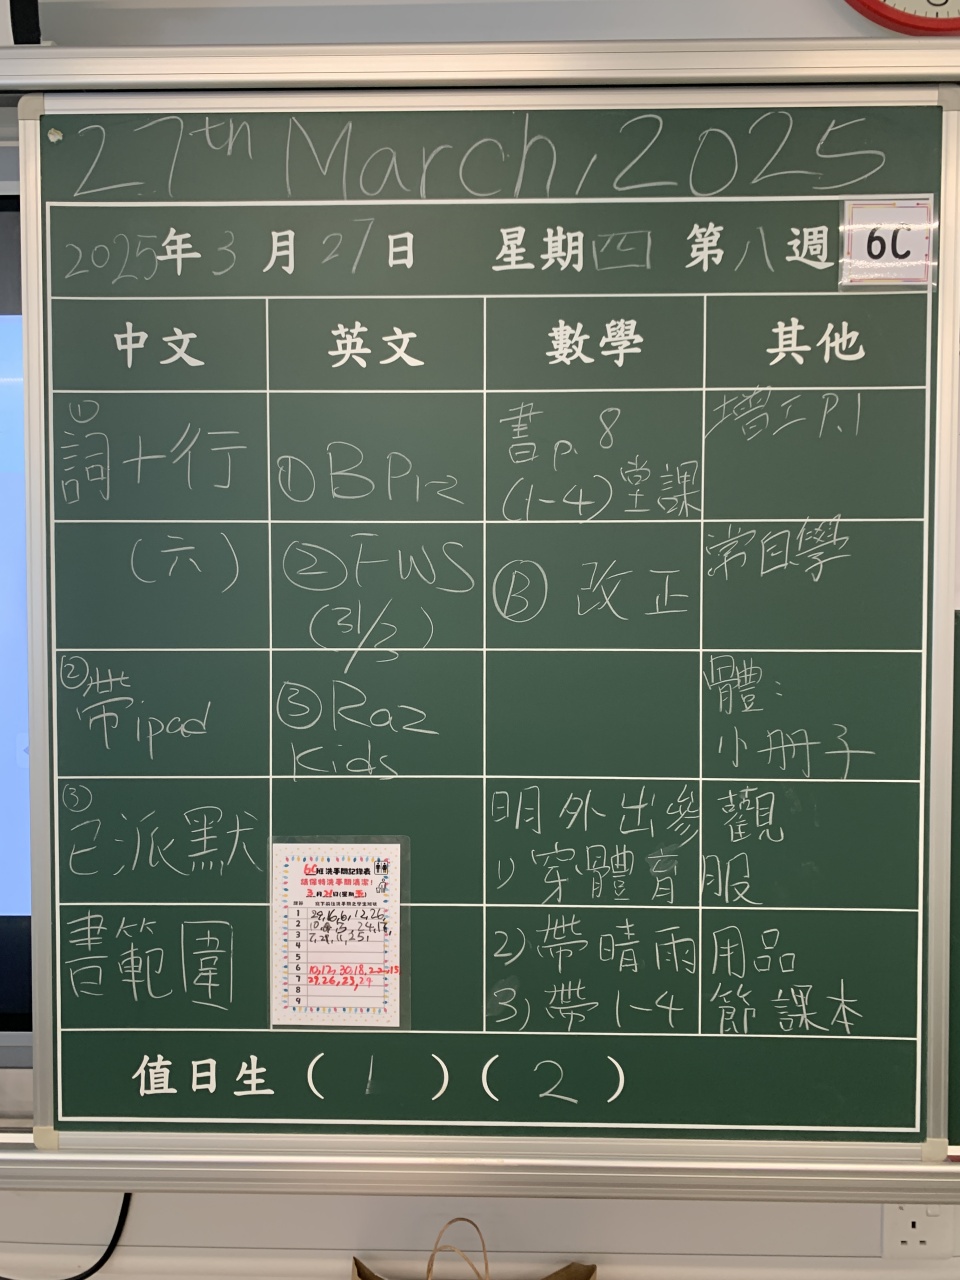 27th March, 2025
2025年3月27日 星期四 第八週 6C
中文 英文 數學 其他
①
詞十行
(六)
②
帶ipad
③
已派默
書範圍
①BP1-2
②FWS
(31/3)
③Raz
Kids
書p.8
(1-4)堂課
Ⓑ 改正
增工P.1
常自學
體:
小冊子
明外出參觀
1)穿體育服
2)帶晴雨用品
3)帶1-4節課本
6C班洗手間記錄表
請保持洗手間清潔!
1
2
3
4
5
6 10,12,30,18,22,15
7 29,26,23,29
8
9
值日生(1)(2)